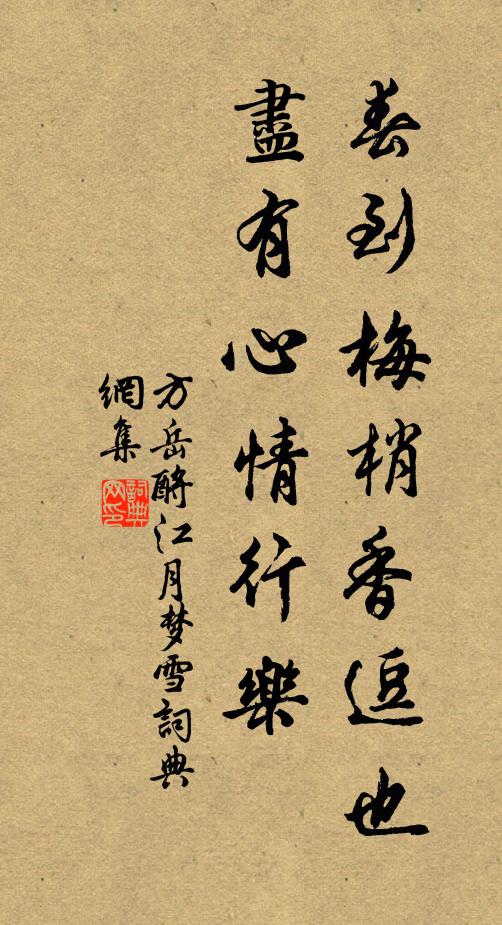 春到梅梢香逗也
盡有心情行樂
方岳酹江月梦雪詞典
網集
詞典
网印